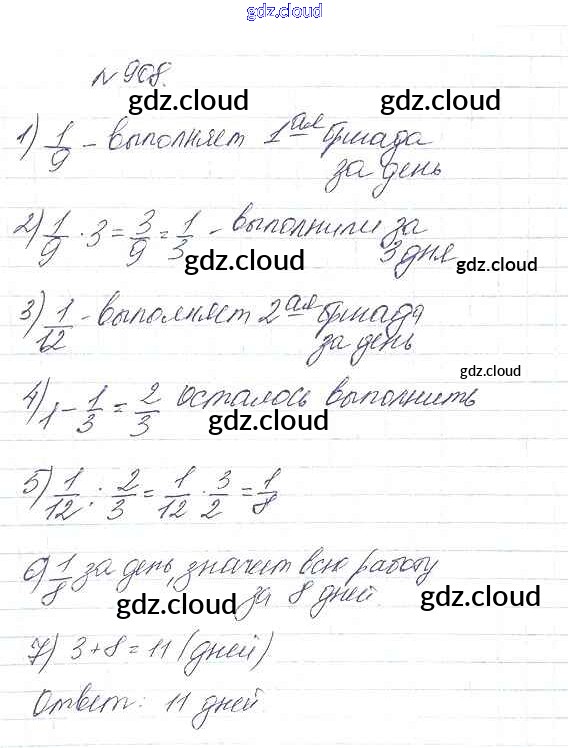 gdz.cloud
№ 908.
gdz.cloud gdz.cloud
1) 1/9 - выполняет 1ая бригада
за день
gdz.cloud gdz.cloud
2) 1/9 · 3 = 3/9 = 1/3 - выполнили за
3 дня
gdz.cloud gdz.cloud
3) 1/12 - выполняет 2ая бригада
за день
gdz.cloud
4) 1 - 1/3 = 2/3 осталось выполнить
gdz.cloud
5) 1/12 : 2/3 = 1/12 · 3/2 = 1/8
6) 1/8 за день, значит всю работу
за 8 дней.
gdz.cloud gdz.cloud
7) 3+8=11 (дней)
Ответ: 11 дней